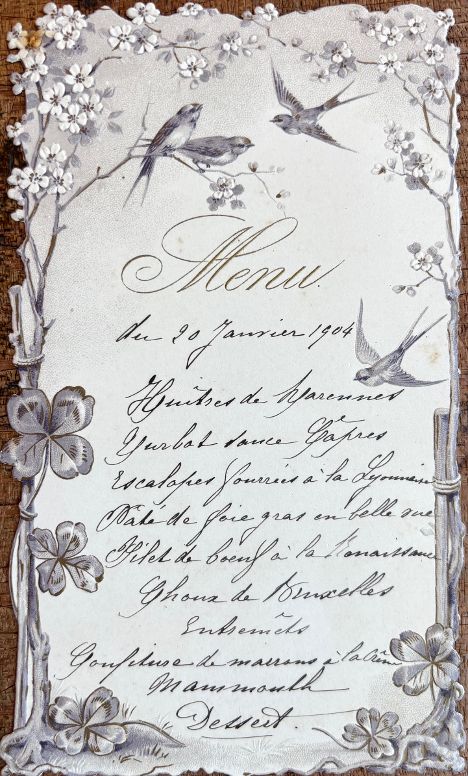 Menu.
du 20 Janvier 1904
Huîtres de Marennes
Turbot sauce Câpres
Escalopes fourrées à la Lyonnaise
Pâté de foie gras en belle vue
Filet de boeuf à la Renaissance
Choux de Bruxelles
Entremêts
Confiture de marrons à la Crême
Mammouth
Dessert.